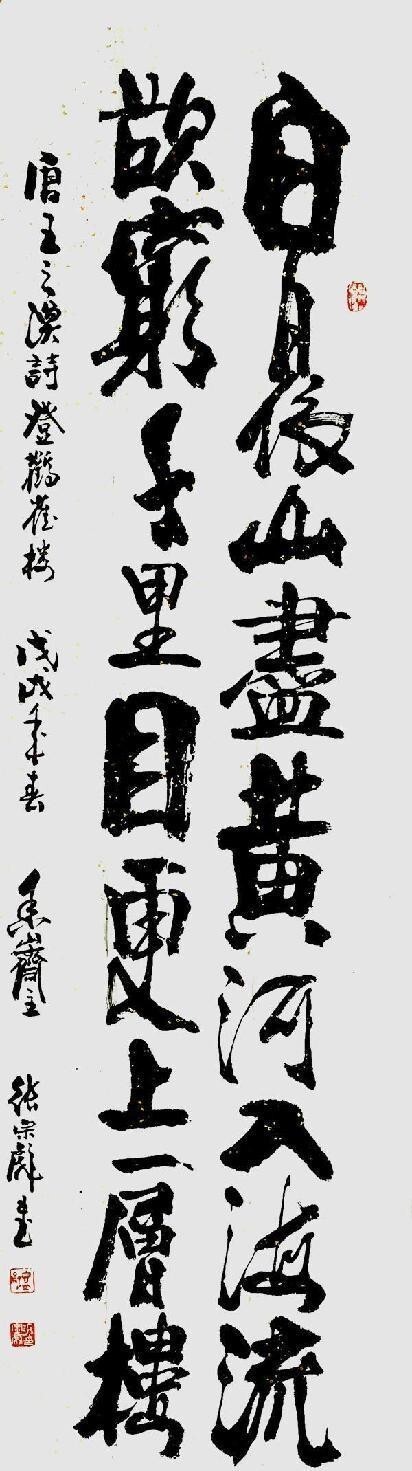 白日依山盡黃河入海流
欲窮千里目更上一層樓
唐王之渙詩登鸛雀楼 戊戌年春 齋主 張宗彪書